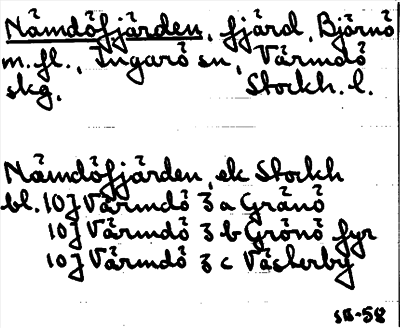 Nämdöfjärden, fjärd, Björnö
m.fl., Ingarö sn, Värmdö
skg, Stockh. l.
Nämdöfjärden, ek Stockh
bl. 10J Värmdö 3 a Grönö
10J Värmdö 3 b Grönö fyr
10J Värmdö 3 c Västerby
SB-58